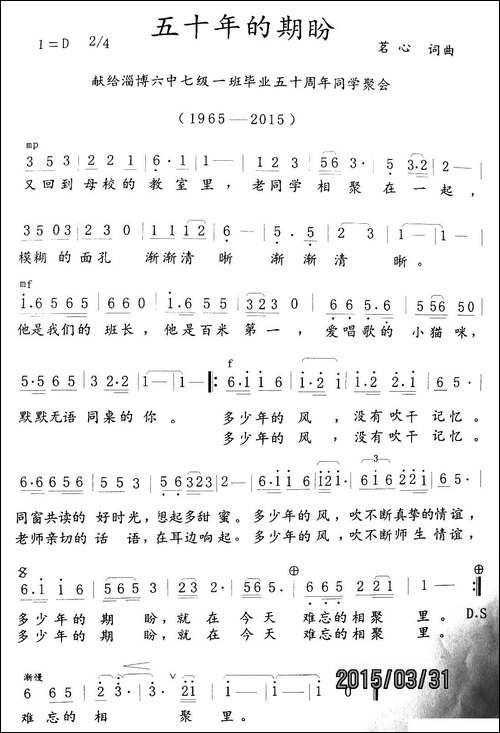 五十年的期盼
1=D 2/4
茗心 词曲
献给淄博六中七级一班毕业五十周年同学聚会
(1965—2015)
mp
3 5 3 | 2 2 1 | 6· 1 | 1— | 1 2 3 | 5 6 3· | 5 3·2 | 2— |
又回到 母校的 教 室 里， 老同学 相 聚 在 一 起，
3503 | 2 3 0 | 1112 | 6— | 5· 5 | 2 3 | 1— | 1— |
模糊 的 面孔 渐渐清 晰 渐 渐清 晰。
mf
1·6565 | 6 6 0 | 1·655 | 3230 | 6 65·6 | 556 50 |
他是我们的 班长，他是百米 第一，爱唱歌的 小猫咪，
f
5·565 | 3 2·2 | 1— | 1— :‖: 6·116 | 1·2 1 | 1·2 2·1 | 6 5· |
默默无语 同桌的 你。 多少年的 风，没有吹干 记忆。
多少年的 风，没有吹干 记忆。
6·6656 | 5 5· | 5 6323 | 2— | 6·116 | 121· | 616221 | 6 5· |
同窗共读的 好时光，想起多甜蜜。多少年的风，吹不断真挚的情谊，
老师亲切的 话 语，在耳边响起。多少年的风，吹不断师生情谊，
6·11 6 | 565 3 | 2 3 5· | 6— | 665 | 221 | 1— :‖
多少年的 期 盼，就 在 今 天 难忘的相聚 里。
D.S
多少年的 期 盼，就 在 今 天 难忘的相聚 里。
渐慢
6 65 | 2 3· | 3· 21 | 1— | 1— | 1 0 ‖
难忘的 相 聚 里。
2015/03/31